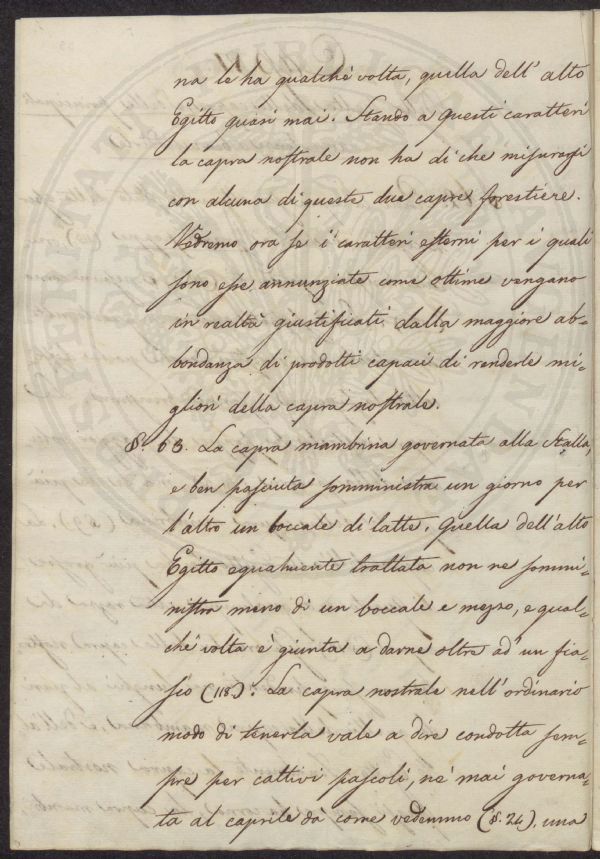 na le ha qualche volta, quella dell' alto
Egitto quasi mai. Stando a questi caratteri
la capra nostrale non ha di che misurarsi
con alcuna di queste due capre forestiere.
Vedremo ora se i caratteri esterni per i quali
sono esse annunziate come ottime vengano
in realtà giustificati dalla maggiore ab-
bondanza di prodotti capaci di renderle mi-
gliori della capra nostrale.
§. 63. La capra mambrina governata alla Stalla,
e ben pasciuta somministra un giorno per
l'altro un boccale di latte. Quella dell'alto
Egitto egualmente trattata non ne sommi-
nistra meno di un boccale e mezzo, e qual-
che volta è giunta a darne oltre ad un fia-
sco (118). La capra nostrale nell'ordinario
modo di tenerla vale a dire condotta sem-
pre per cattivi pascoli, nè mai governa-
ta al caprile dà come vedemmo (§. 24). una